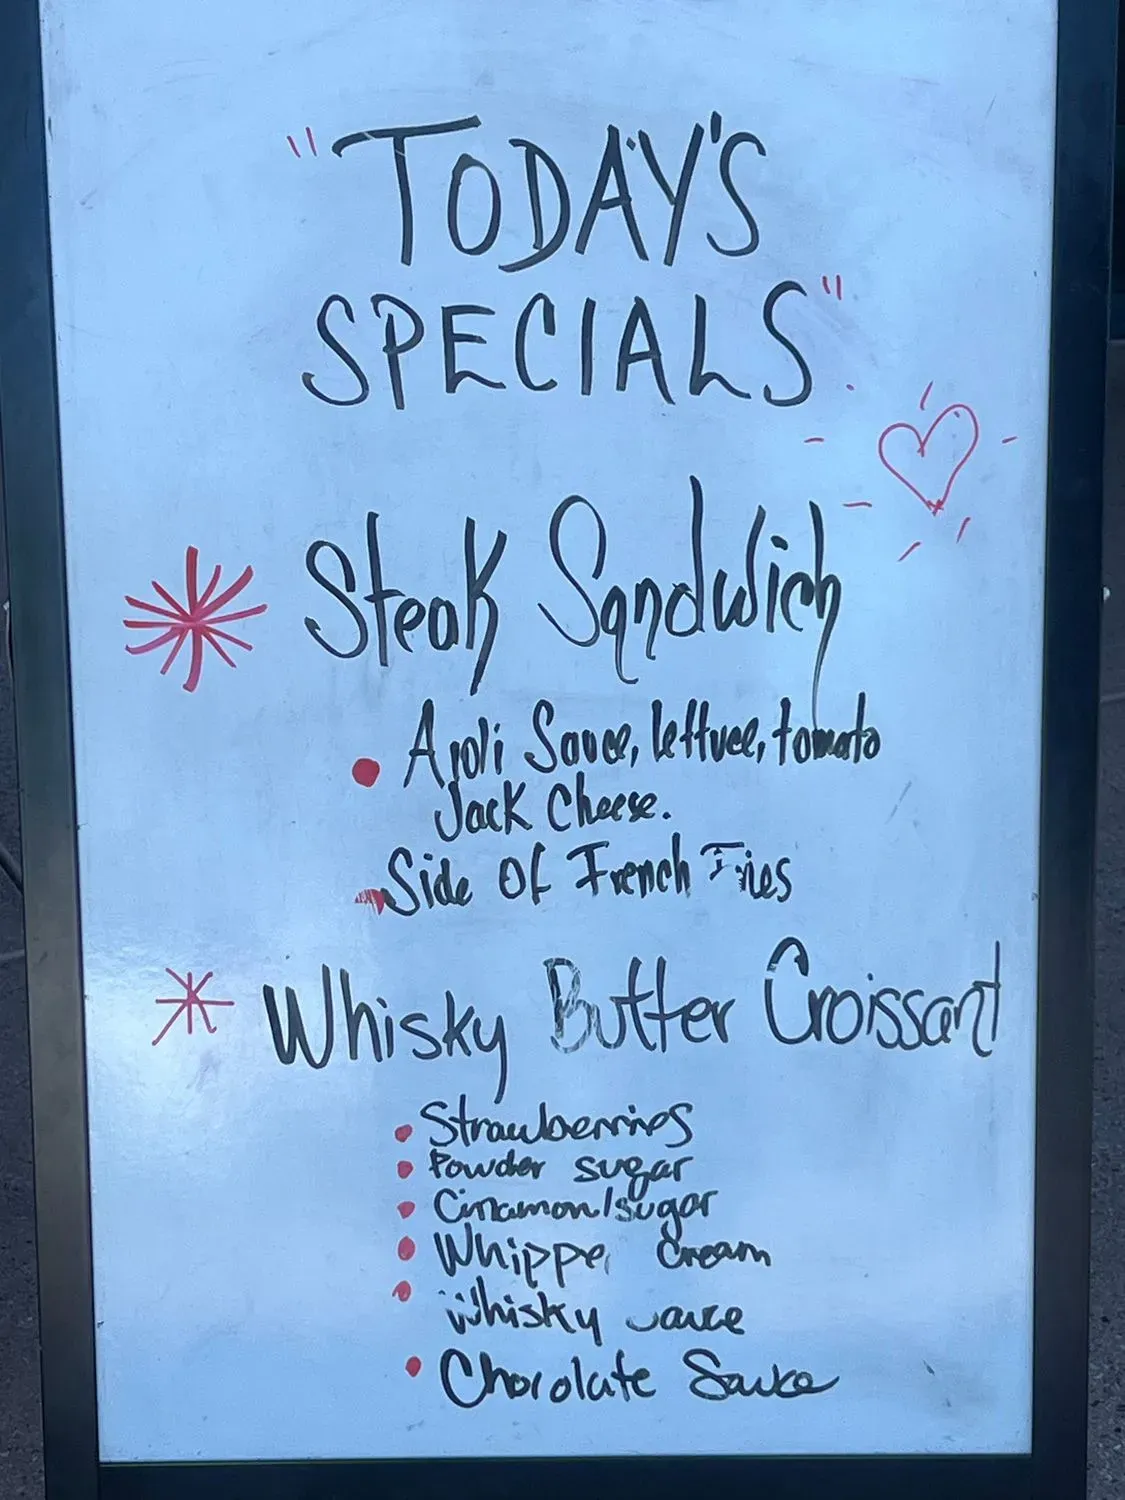 "TODAY'S
SPECIALS"
Steak Sandwich
Aioli Sauce, lettuce, tomato
Jack Cheese.
Side Of French Fries
Whisky Butter Croissant
Strawberries
Powder sugar
Cinamon/sugar
Whippe Cream
Whisky sauce
Chocolate Sauce